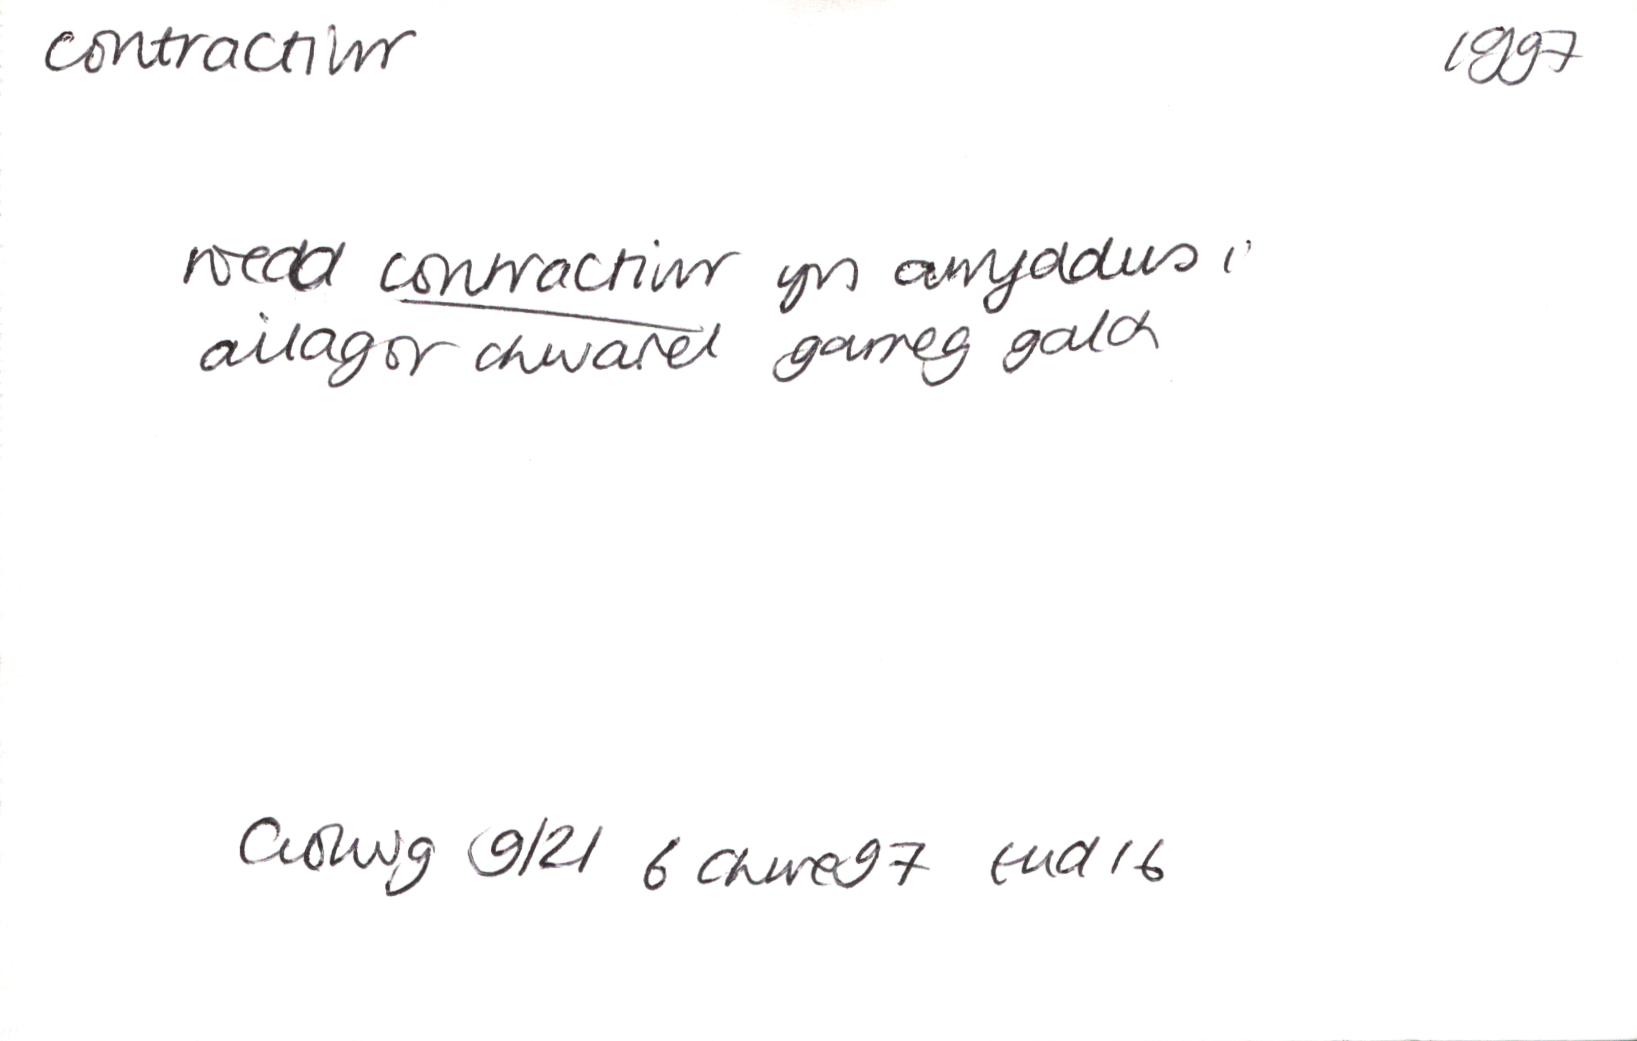 contractiwr 1997
roedd contractiwr yn awyddus i
ailagor chwarel garreg galch
Golwg 9/21 6 Chwe97 tud 16